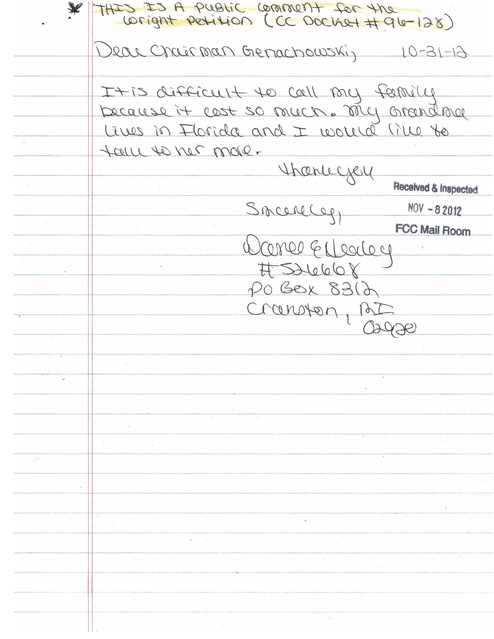 * THIS IS A PUBLIC comment for the
Wright Petition (CC Docket # 96-128)
Dear Chairman Genachowski, 10-31-12
It is difficult to call my family
because it cost so much. My Grandma
lives in Florida and I would like to
talk to her more.
Thank you
Received & Inspected
NOV - 8 2012
FCC Mail Room
Sincerely,
# 526668
PO Box 8312
Cranston, RI
02920